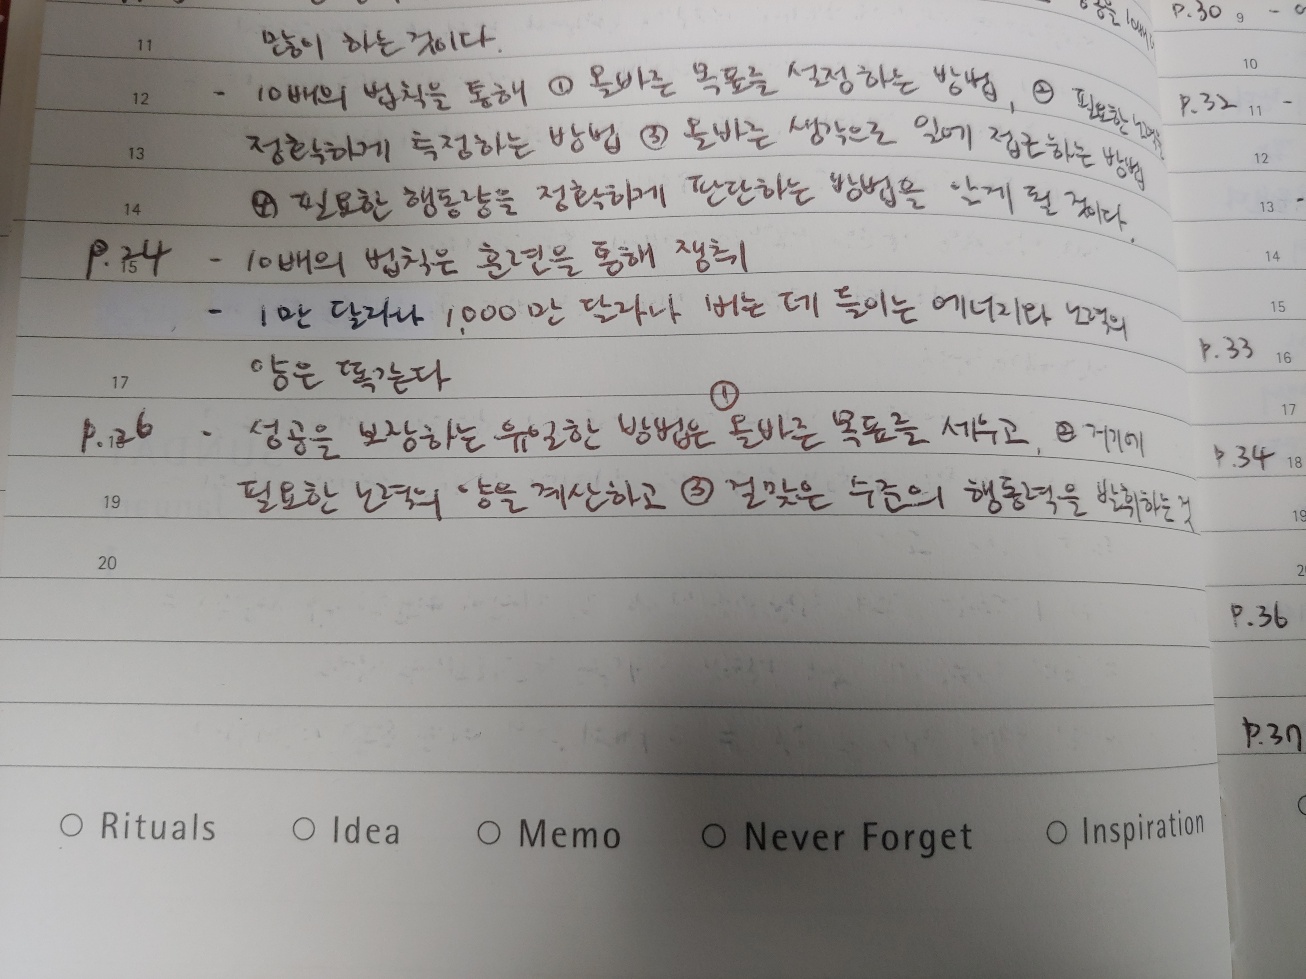 11 많이 하는 것이다.
12 - 10배의 법칙을 통해 ① 올바른 목표를 설정하는 방법, ② 필요한
13 정확하게 측정하는 방법 ③ 올바른 생각으로 일에 접근하는 방법
14 ④ 필요한 행동량을 정확하게 판단하는 방법을 알게 될 것이다.
P.24 15 - 10배의 법칙은 훈련을 통해 쟁취
- 1만 달러나 1,000만 달러나 버는 데 들이는 에너지와 노력의
17 양은 똑같다
P.26 - 성공을 보장하는 유일한 방법은 ① 올바른 목표를 세우고, ② 거기에
19 필요한 노력의 양을 계산하고 ③ 걸맞은 수준의 행동력을 발휘하는 것
20
○ Rituals ○ Idea ○ Memo ○ Never Forget ○ Inspiration
P.30 9 -
10
P.32 11 -
12
13 -
14
15
P.33 16
17
P.34 18
19
P.36
P.37